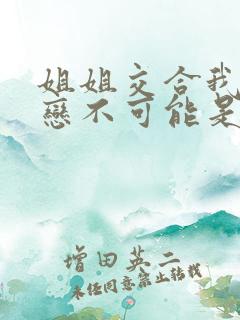 姐姐交合我
戀不可能是
增田英二
未经同意禁止转载